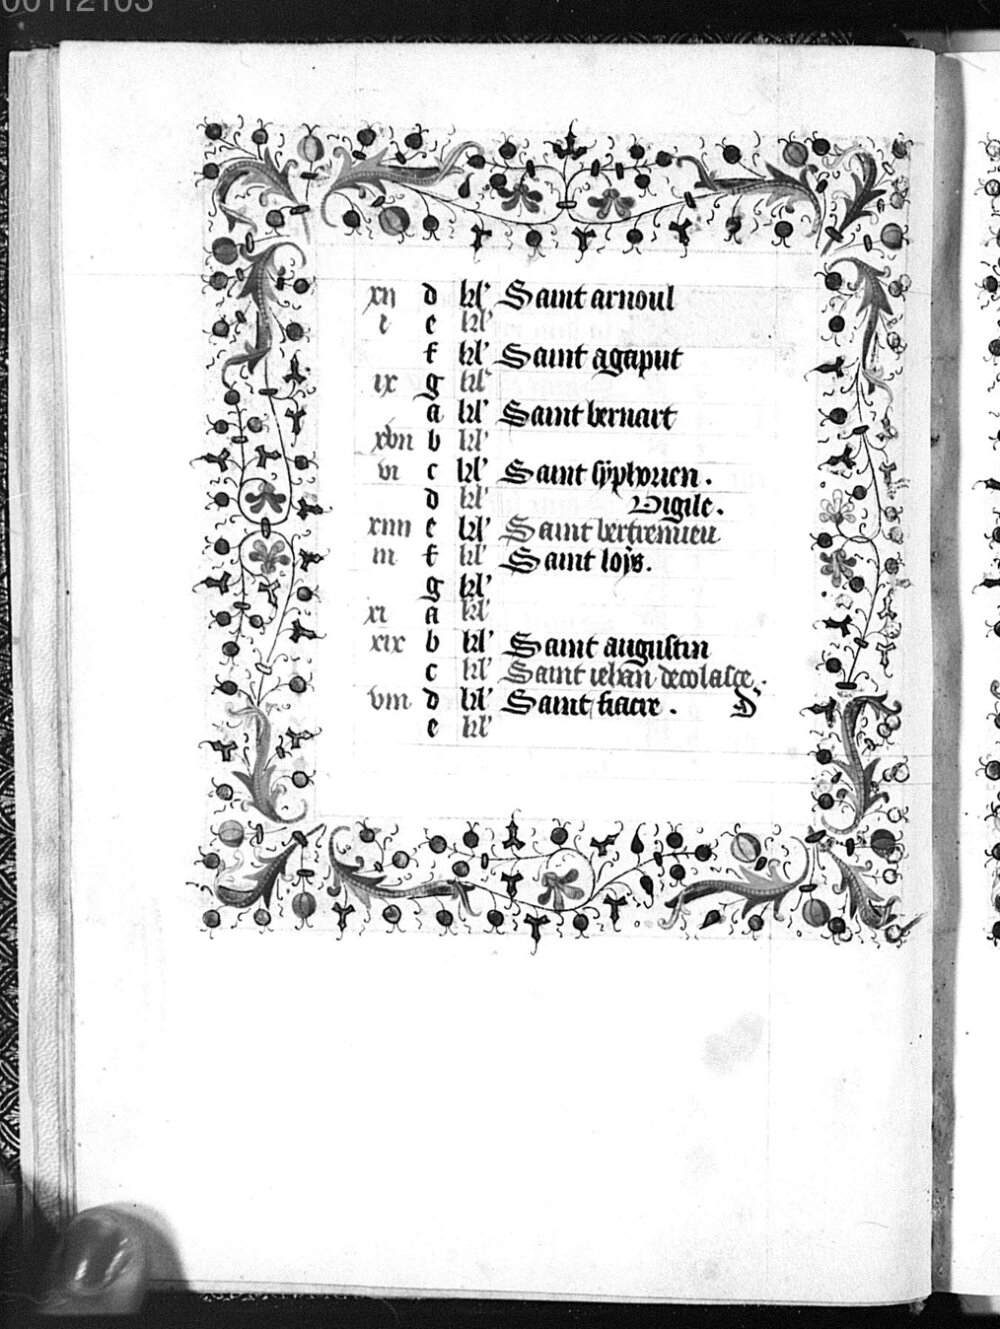 00112103
xii d kl' Saint arnoul
i e kl'
f kl' Saint agaput
ix g kl'
a kl' Saint bernart
xvii b kl'
vi c kl' Saint syphorien.
d kl' Vigile.
xiiii e kl' Saint bertremieu
iii f kl' Saint loys.
g kl'
xi a kl'
xix b kl' Saint augustin
c kl' Saint iehan decolasce.
viii d kl' Saint fiacre.
e kl'